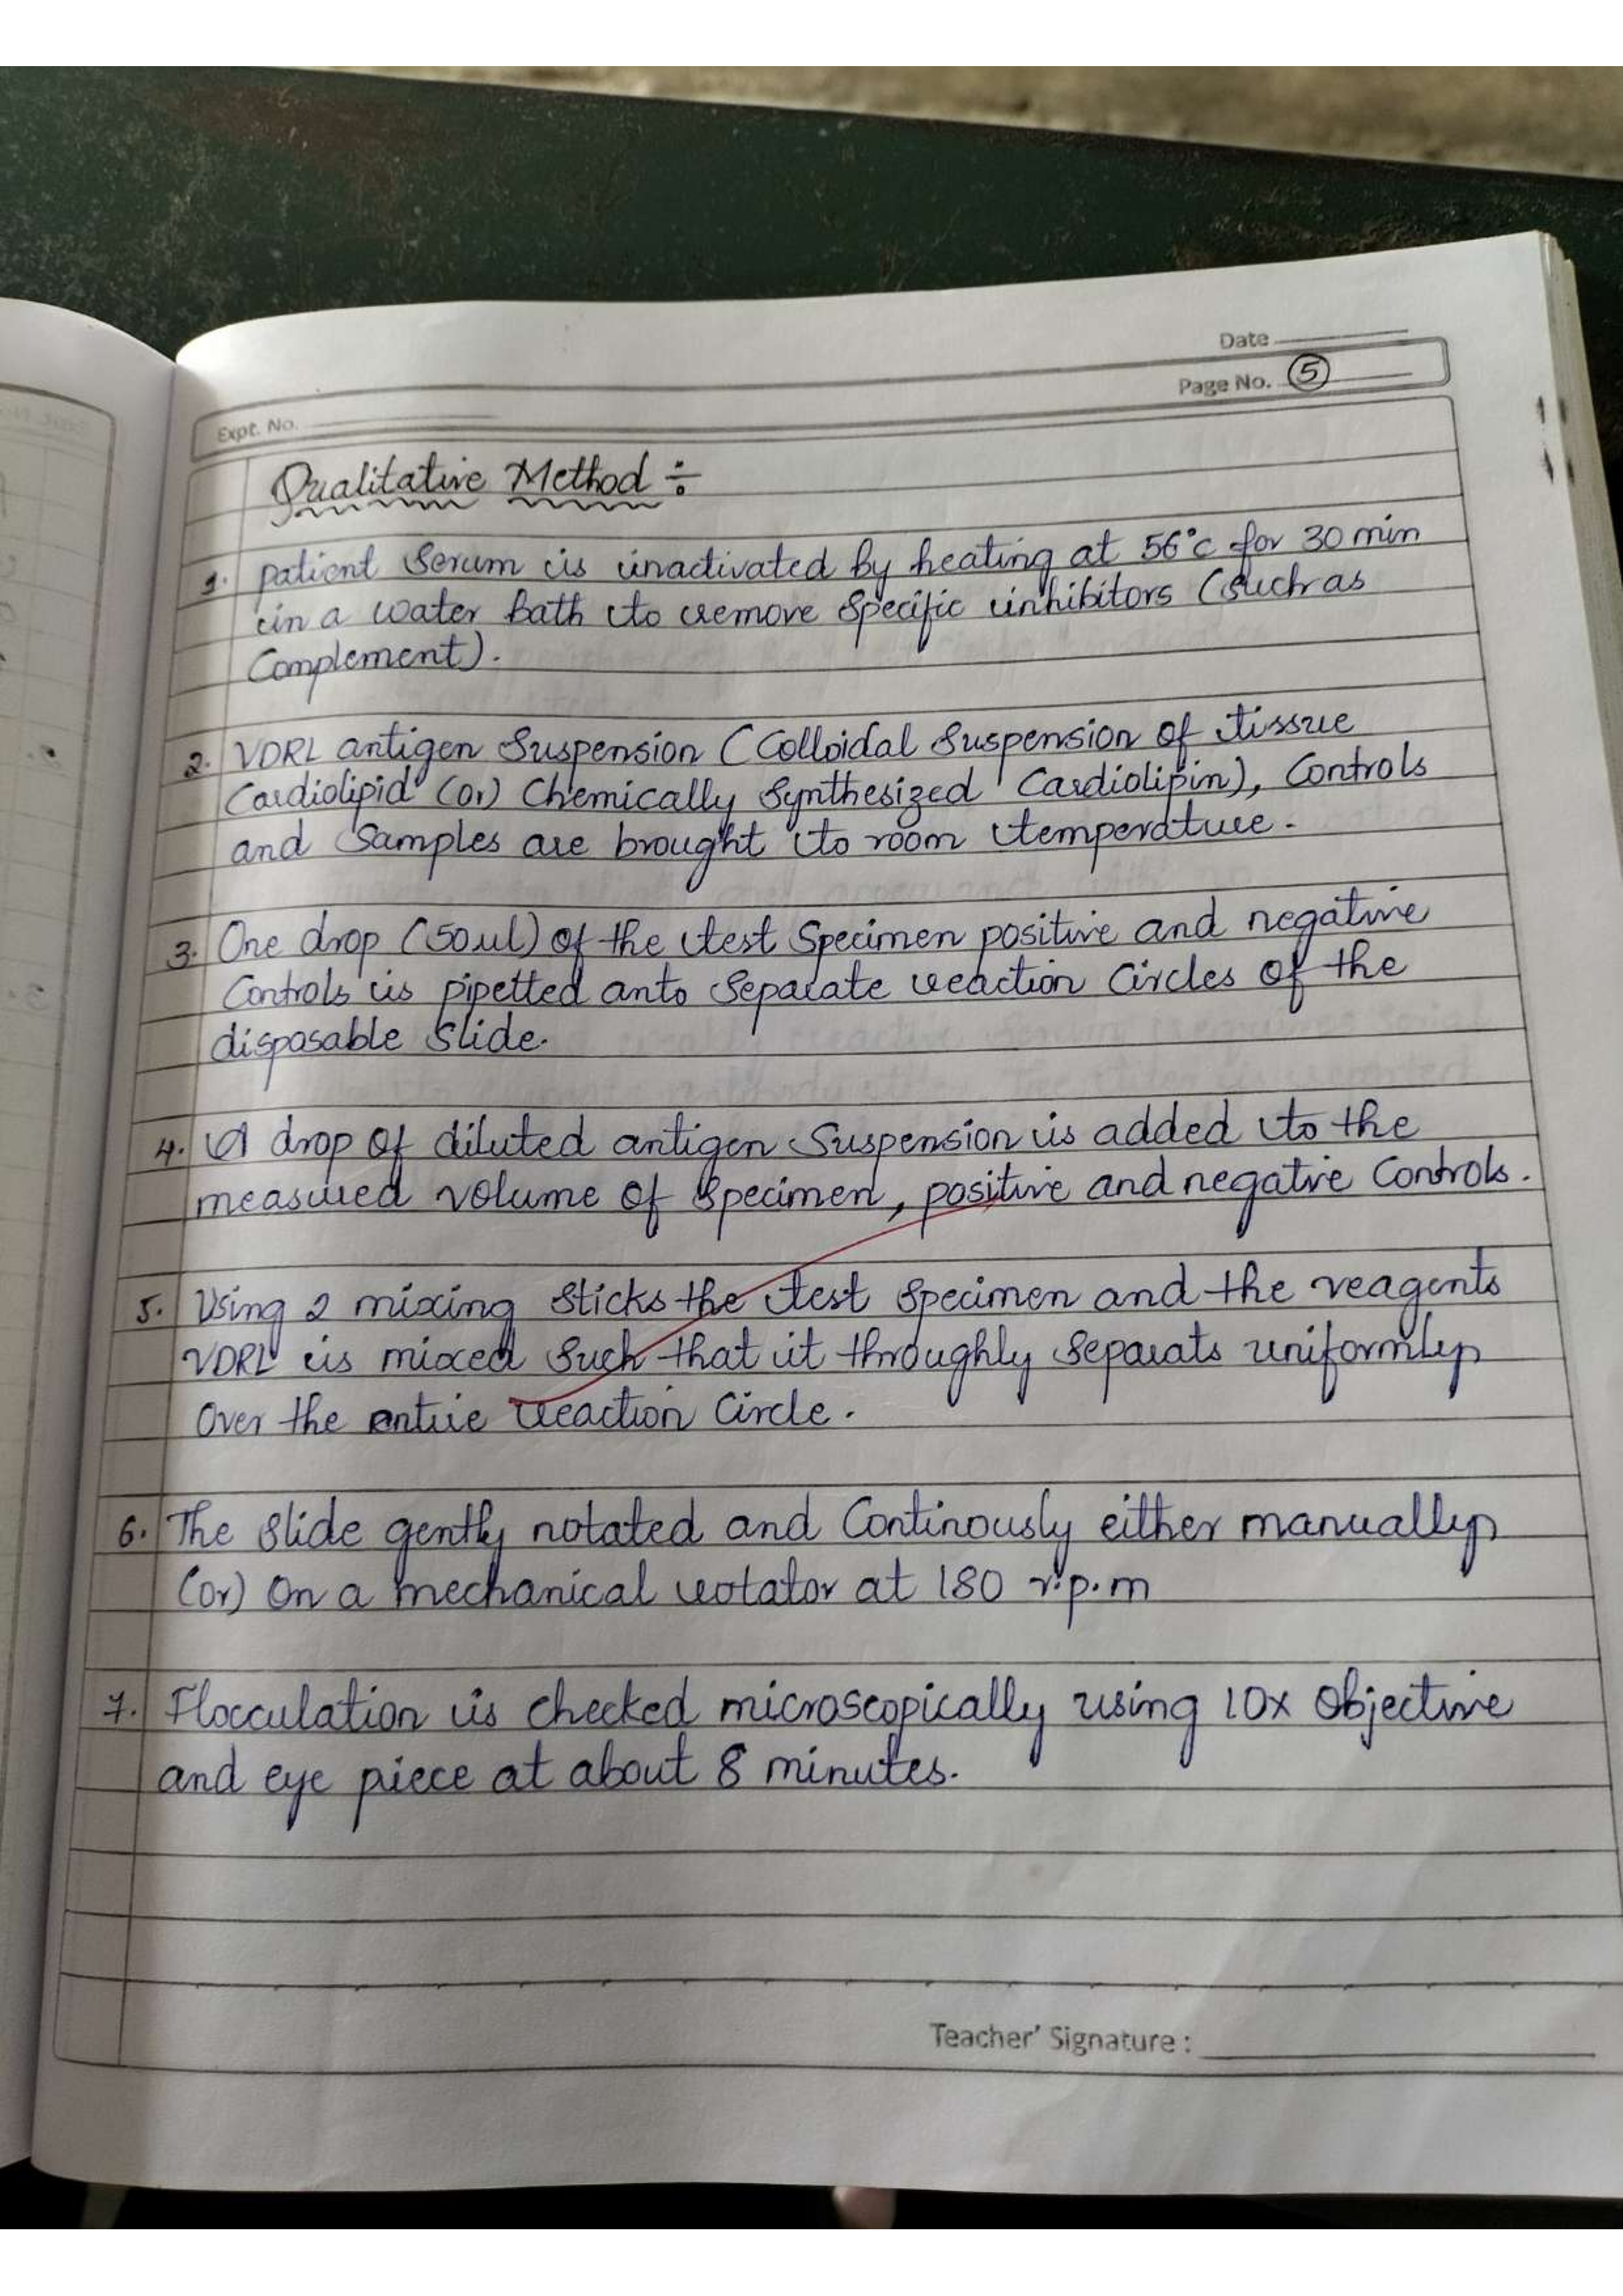 Date
Page No. 5
Expt. No.
Qualitative Method ÷
1. patient Serum is inactivated by heating at 56°c for 30 min
in a water bath to remove Specific inhibitors (such as
Complement).
2. VDRL antigen Suspension (Colloidal Suspension of tissue
Cardiolipid (or) Chemically Synthesized Cardiolipin), Controls
and Samples are brought to room temperature.
3. One drop (50ul) of the test Specimen positive and negative
Controls is pipetted anto Separate reaction Circles of the
disposable Slide.
4. A drop of diluted antigen Suspension is added to the
measured volume of Specimen, positive and negatvie Controls.
5. Using 2 mixing Sticks the test Specimen and the reagents
VDRL is mixed Such that it throughly Separats uniformly
Over the entire reaction Circle.
6. The Slide gently notated and Continously either manually
(or) On a mechanical rotator at 180 r.p.m
7. Flocculation is checked microscopically using 10x Objective
and eye piece at about 8 minutes.
Teacher' Signature :